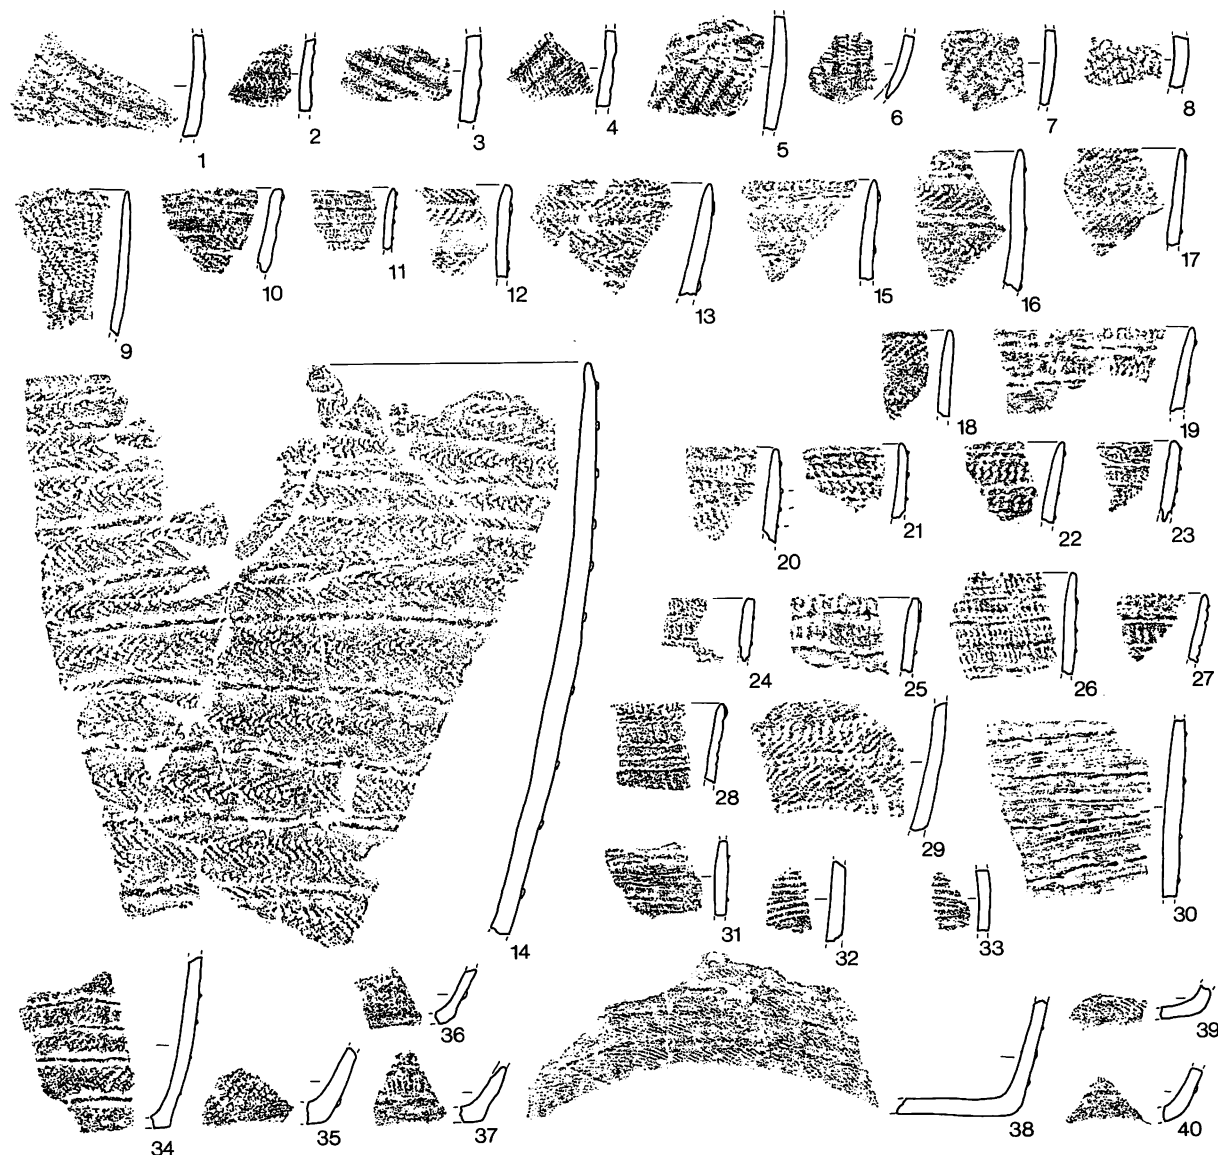 1 2 3 4 5 6 7 8
9 10 11 12 13 15 16 17
18 19
20 21 22 23
24 25 26 27
28 29 30
31 32 33
14
34 35 36 37 38 39 40